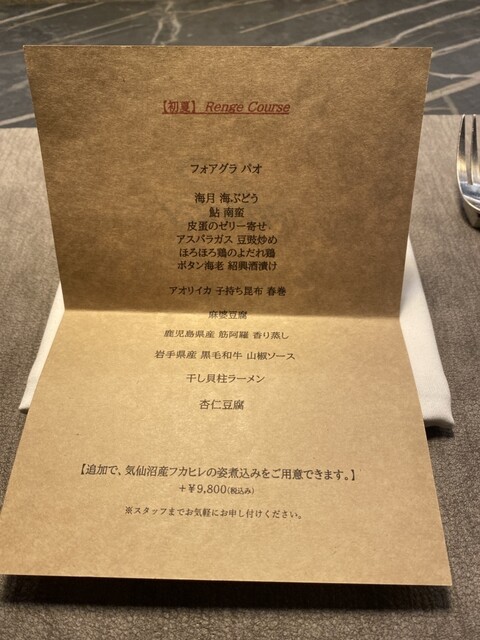 【初夏】 Renge Course
フォアグラ パオ
海月 海ぶどう
鮎 南蛮
皮蛋のゼリー寄せ
アスパラガス 豆豉炒め
ほろほろ鶏のよだれ鶏
ボタン海老 紹興酒漬け
アオリイカ 子持ち昆布 春巻
麻婆豆腐
鹿児島県産 筋阿羅 香り蒸し
岩手県産 黒毛和牛 山椒ソース
干し貝柱ラーメン
杏仁豆腐
【追加で、気仙沼産フカヒレの姿煮込みをご用意できます。】
+¥9,800(税込み)
※スタッフまでお気軽にお申し付けください。